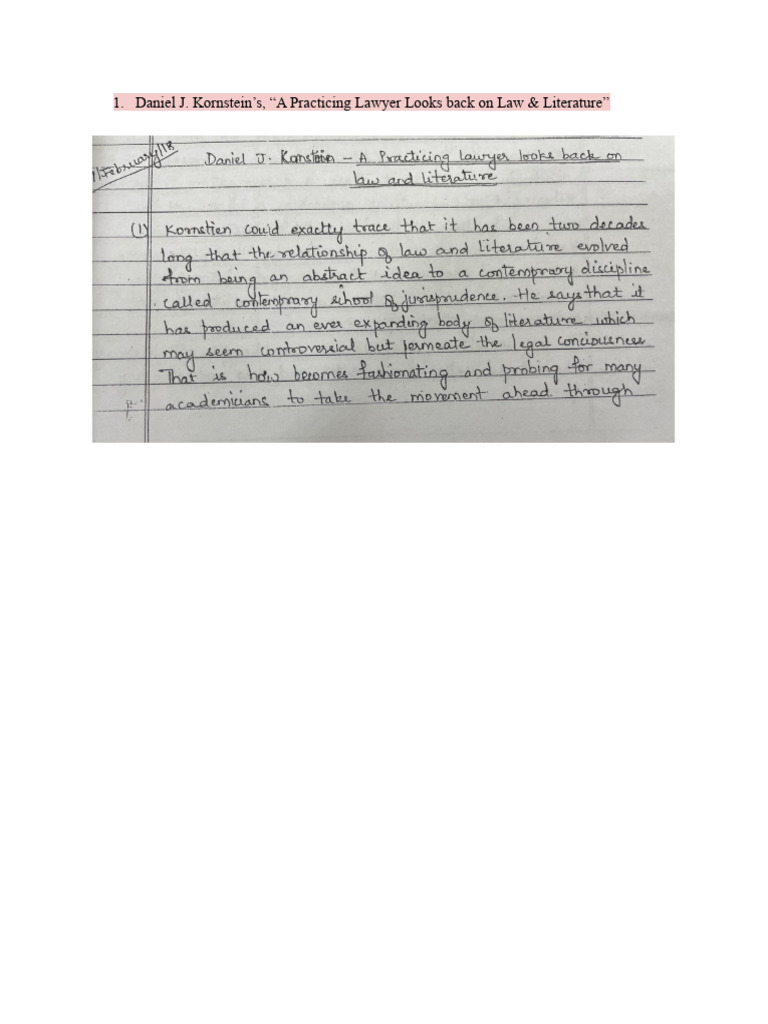 1. Daniel J. Kornstein’s, “A Practicing Lawyer Looks back on Law & Literature”
1/February/18
Daniel J. Kornstein – A Practicing lawyer looks back on
law and literature
(1) Kornstien could exactly trace that it has been two decades
long that the relationship of law and literature evolved
from being an abstract idea to a contemprary discipline
called contemprary school of jurisprudence. He says that it
has produced an ever expanding body of literature which
may seem controversial but permeate the legal conciousness
That is how becomes fashionating and probing for many
academicians to take the movement ahead through